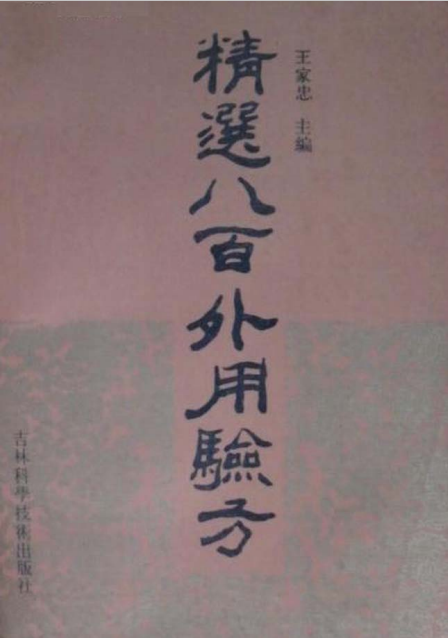 王家忠 主编
精選八百外用驗方
吉林科學技術出版社